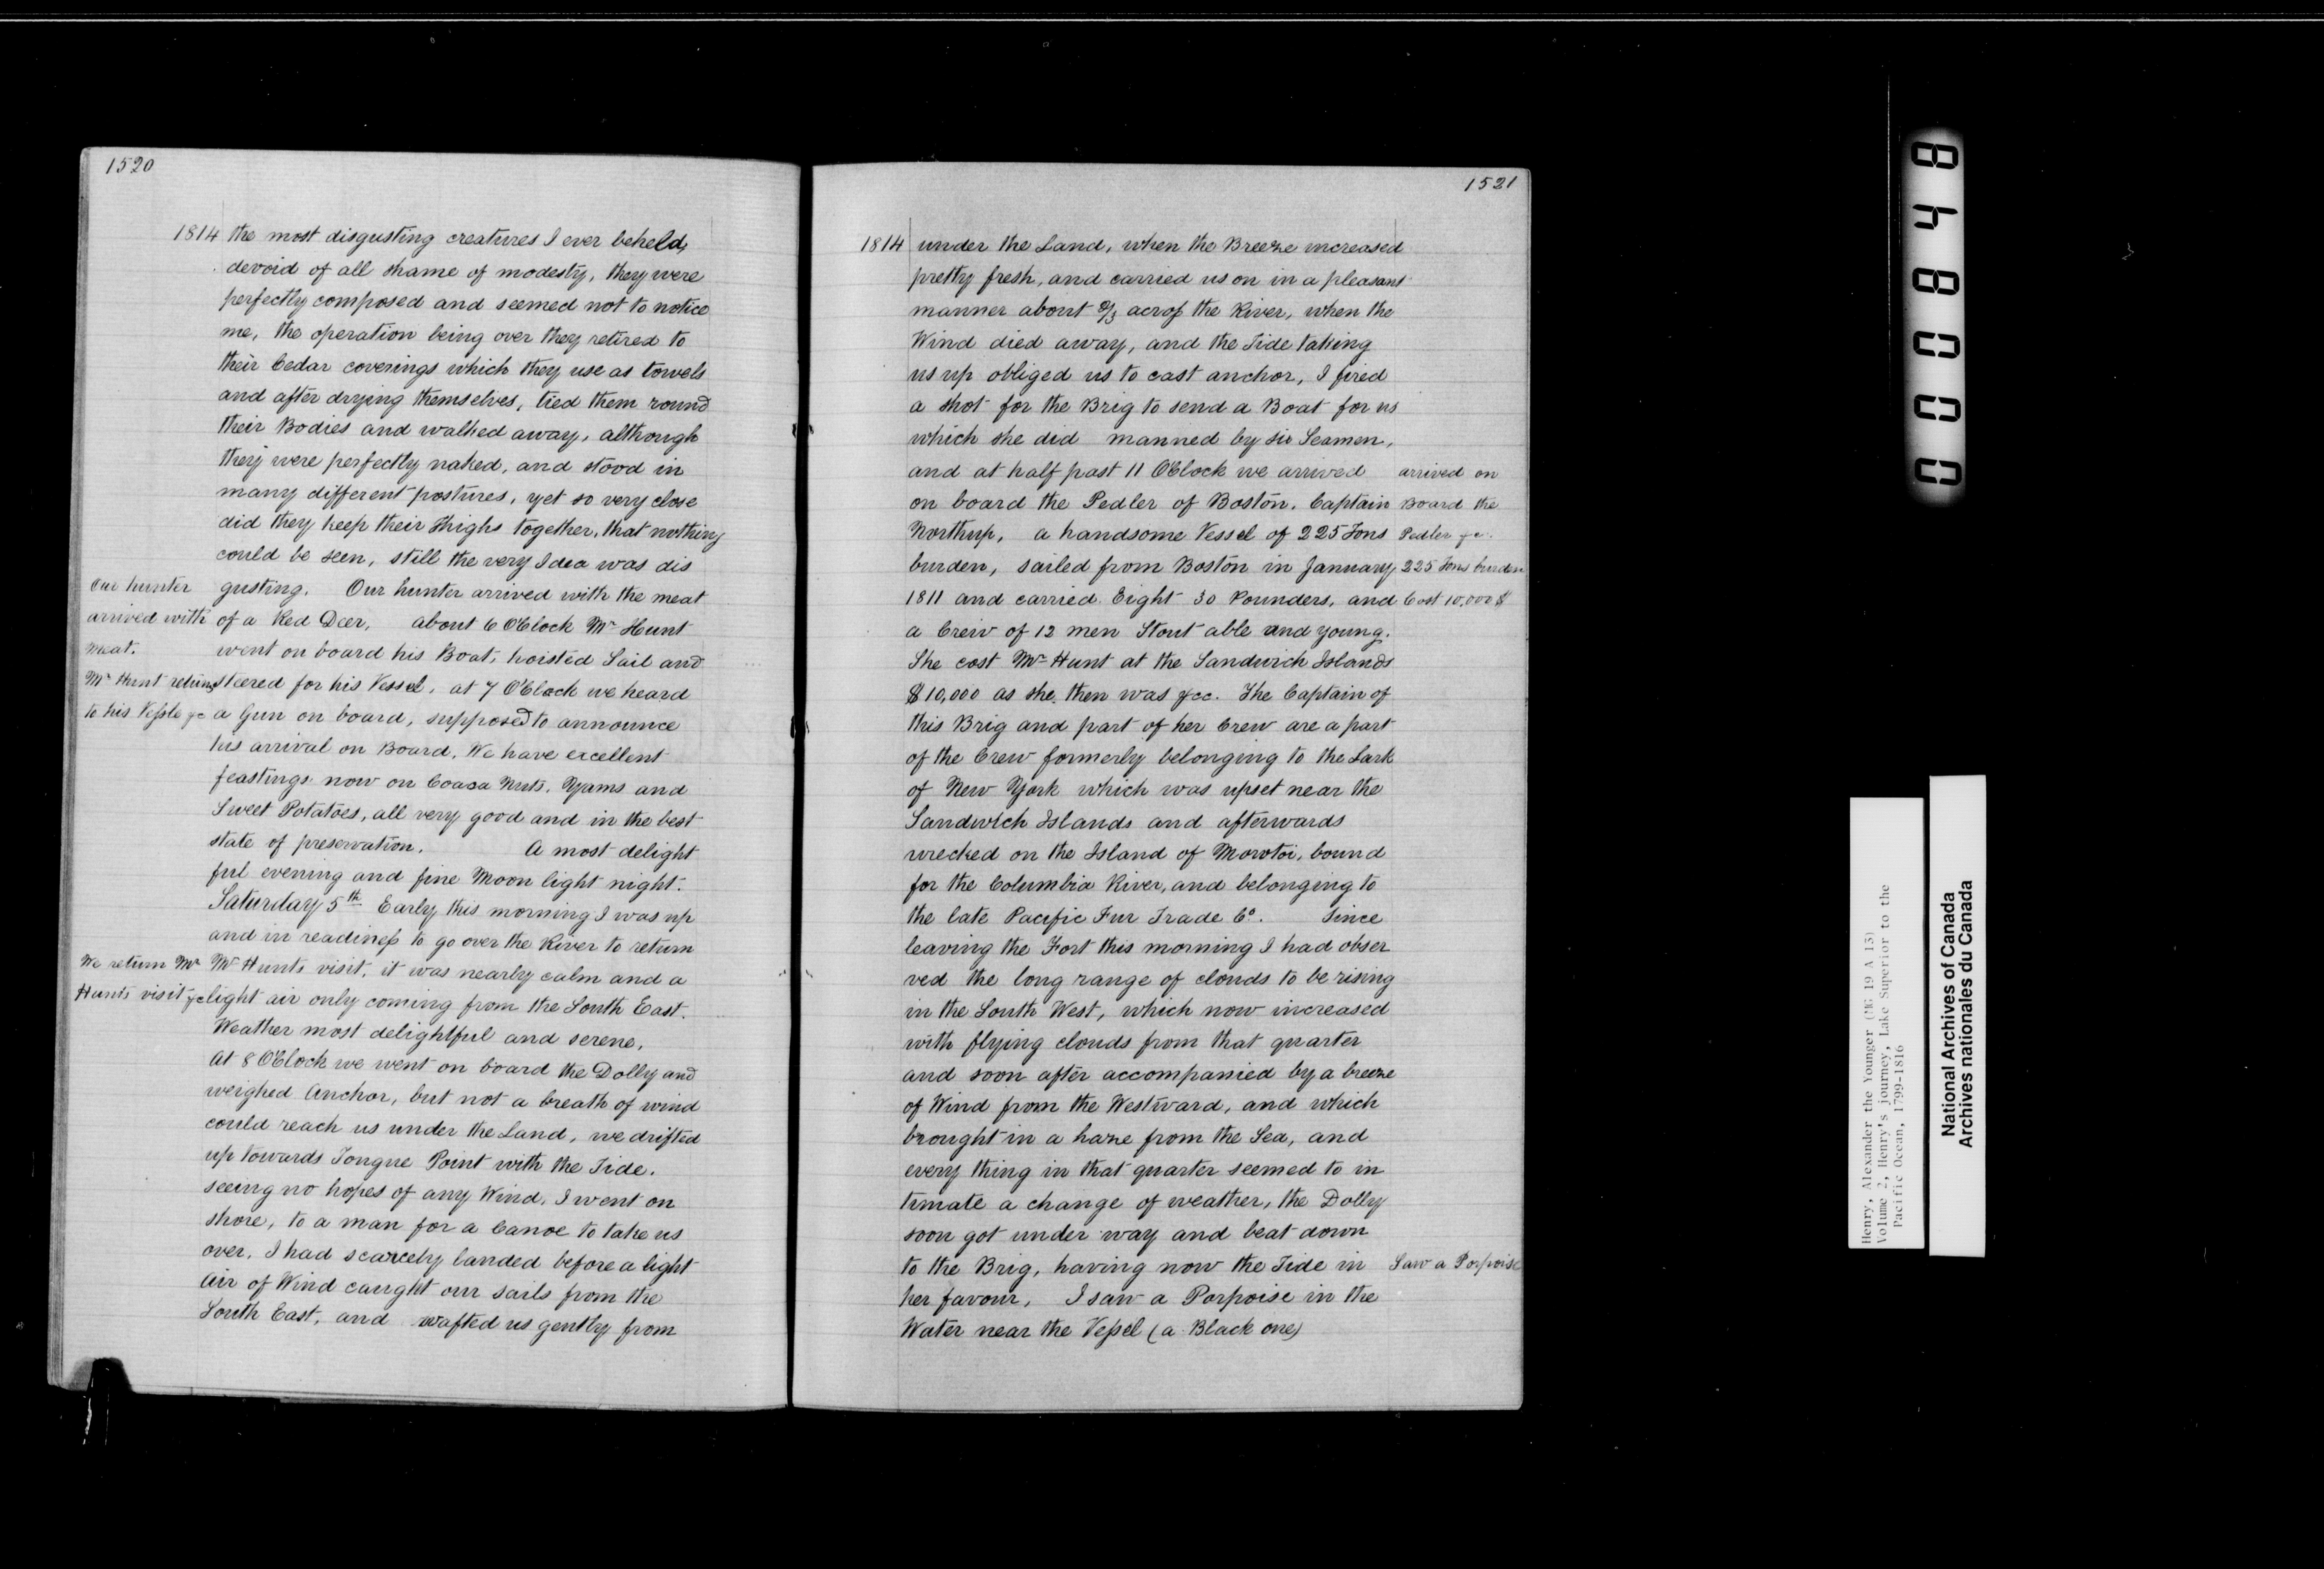 1520
1814 the most disgusting creatures I ever beheld,
devoid of all shame of modesty, they were
perfectly composed and seemed not to notice
me, the operation being over they retired to
their Cedar coverings which they use as towels
and after drying themselves, tied them round
their Bodies and walked away, although
they were perfectly naked, and stood in
many different postures, yet so very close
did they keep their thighs together, that nothing
could be seen, still the very Idea was dis
gusting. Our hunter arrived with the meat
of a Red Deer, about 6 O'Clock Mr Hunt
went on board his Boat, hoisted Sail and
steered for his Vessel, at 7 O'Clock we heard
a Gun on board, supposed to announce
his arrival on Board. We have excellent
feastings now on Coaca Nuts, Yams and
Sweet Potatoes, all very good and in the best
state of preservation. A most delight
ful evening and fine Moon light night.
Saturday 5th Early this morning I was up
and in readiness to go over the River to return
Mr Hunts visit, it was nearly calm and a
light air only coming from the South East.
Weather most delightful and serene,
At 8 O'Clock we went on board the Dolly and
weighed Anchor, but not a breath of wind
could reach us under the Land, we drifted
up towards Tongue Point with the Tide.
seeing no hopes of any Wind, I went on
shore, to a man for a Canoe to take us
over, I had scarcely landed before a light
Air of Wind caught our sails from the
South East, and wafted us gently from
Our hunter
arrived with
meat.
Mr Hunt returns
to his Vessle &c
We return Mr
Hunts visit &c
1521
1814 under the Land, when the Breeze increased
pretty fresh, and carried us on in a pleasant
manner about 2/3 across the River, when the
Wind died away, and the Tide taking
us up obliged us to cast anchor, I fired
a shot for the Brig to send a Boat for us
which she did manned by six Seamen,
and at half past 11 O'Clock we arrived
on board the Pedler of Boston, Captain
Northup, a handsome Vessel of 225 Tons
burden, sailed from Boston in January
1811 and carried Eight 30 Pounders, and
a Crew of 12 men Stout able and young.
She cost Mr Hunt at the Sandwich Islands
$10,000 as she then was &cc. The Captain of
this Brig and part of her Crew are a part
of the Crew formerly belonging to the Lark
of New York which was upset near the
Sandwich Islands and afterwards
wrecked on the Island of Mowtoi, bound
for the Columbia River, and belonging to
the late Pacific Fur Trade Co. Since
leaving the Fort this morning I had obser
ved the long range of clouds to be rising
in the South West, which now increased
with flying clouds from that quarter
and soon after accompanied by a breeze
of Wind from the Westward, and which
brought in a haze from the Sea, and
every thing in that quarter seemed to in
timate a change of weather, the Dolly
soon got under way and beat down
to the Brig, having now the Tide in
her favour, I saw a Porpoise in the
Water near the Vessel (a Black one)
arrived on
Board the
Pedler &c.
225 Tons burden
Cost 10,000 $
Saw a Porpoise
000848
Henry, Alexander the Younger (MG 19 A 13)
Volume 2, Henry's journey, Lake Superior to the
Pacific Ocean, 1799-1816
National Archives of Canada
Archives nationales du Canada